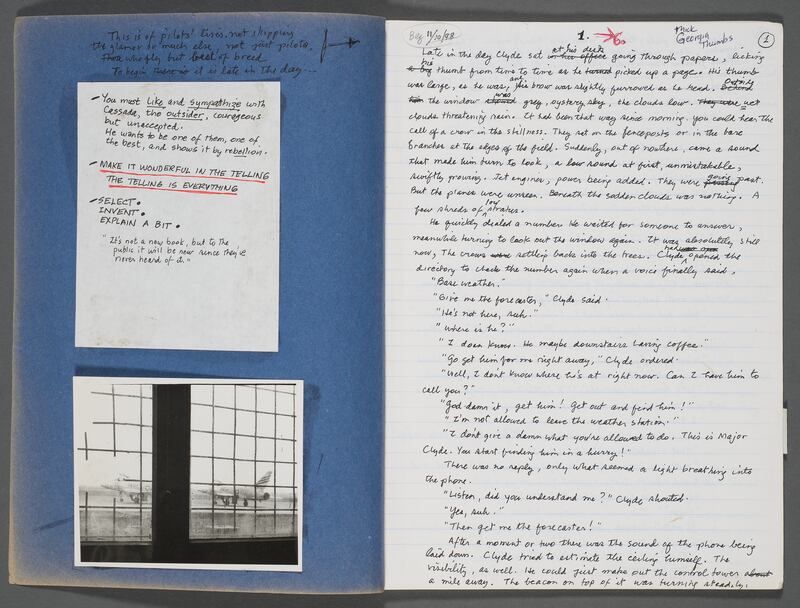 This is of pilots' lives, not skipping
the glamor or much else, not just pilots,
who fly but best of breed.
To begin it is late in the day...
- You must like and sympathize with
Cassada, the outsider, courageous
but unaccepted.
He wants to be one of them, one of
the best, and shows it by rebellion.
- MAKE IT WONDERFUL IN THE TELLING
THE TELLING IS EVERYTHING
- SELECT.
INVENT.
EXPLAIN A BIT.
"It's not a new book, but to the
public it will be new since they've
never heard of it."
Beg 11/10/98
1.
thick
Georgia
thumbs
1
Late in the day Clyde sat in his office at his desk going through papers, licking
his big thumb from time to time as he turned picked up a page. His thumb
was large, as he was, his brow was slightly furrowed as he read. Outside
the window was grey, oystery sky, the clouds low. They were wet
clouds threatening rain. It had been that way since morning. You could hear the
call of a crow in the stillness. They sat on the fenceposts or in the bare
branches at the edges of the field. Suddenly, out of nowhere, came a sound
that made him turn to look, a low sound at first, unmistakable,
swiftly growing. Jet engines, power being added. They were passing going past.
But the planes were unseen. Beneath the sodden clouds was nothing. A
few shreds of low stratus.
He quickly dialed a number. He waited for someone to answer,
meanwhile turning to look out the window again. It was absolutely still
now, The crows were settling back into the trees. Clyde had opened the
directory to check the number again when a voice finally said,
"Base weather."
"Give me the forecaster," Clyde said.
"He's not here, suh."
"Where is he?"
"I doan know. He maybe downstairs having coffee."
"Go get him for me right away," Clyde ordered.
"Well, I dont know where he's at right now. Can I have him to
call you?"
"God damn it, get him! Get out and find him!"
"I'm not allowed to leave the weather station."
"I don't give a damn what you're allowed to do. This is Major
Clyde. You start finding him in a hurry!"
There was no reply, only what seemed a light breathing into
the phone.
"Listen, did you understand me?" Clyde shouted.
"Yes, suh."
"Then get me the forecaster!"
After a moment or two there was the sound of the phone being
laid down. Clyde tried to estimate the ceiling himself. The
visibility, as well. He could just make out the control tower about
a mile away. The beacon on top of it was turning steadily.